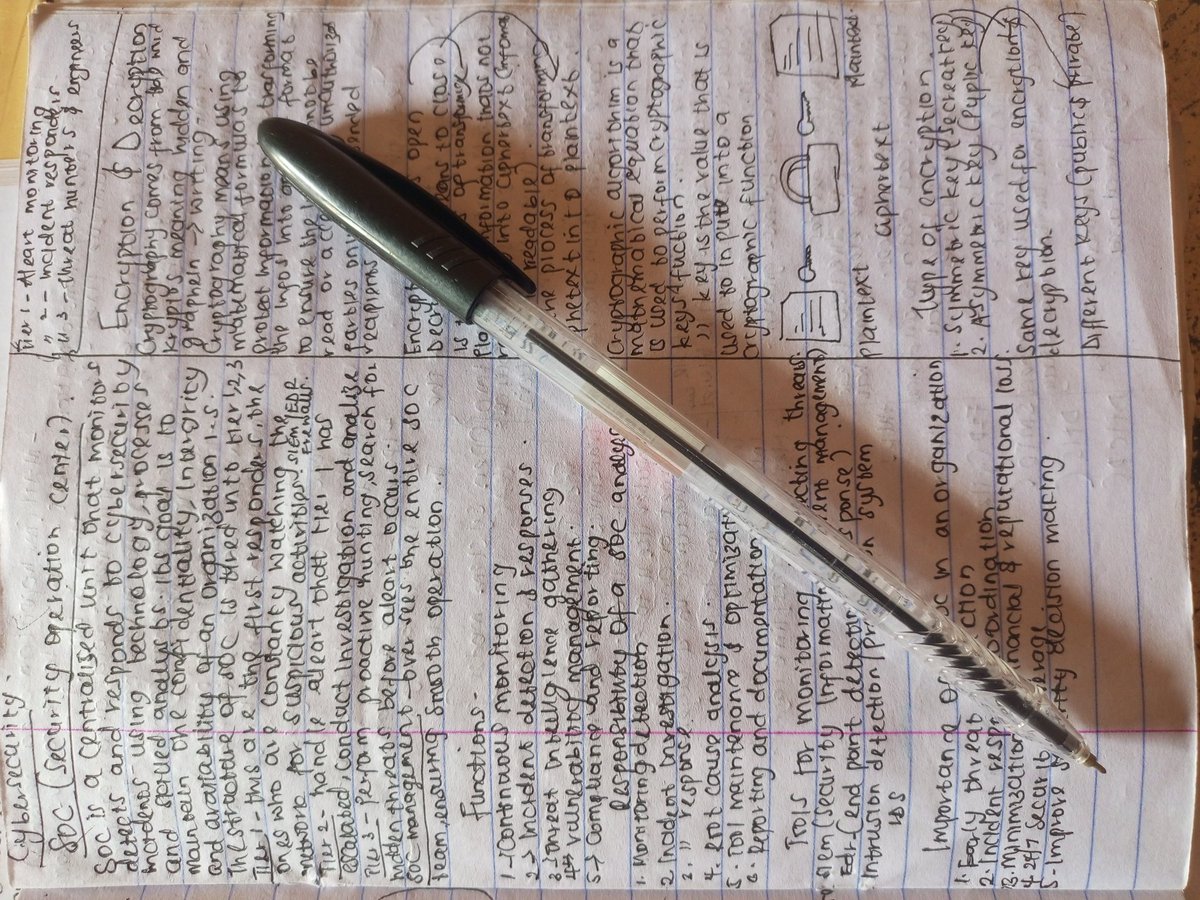 Cybersecurity.
SOC (Security operation center).
SOC is a centralised unit that monitors
detects and respond to cybersecurity
incidents using technology, processes
and skilled analysts. Its goal is to
maintain the confidentiality, intergrity
and availability of an organization
The structure of SOC is tired into tier 1,2,3
Tier 1 - they are the first responders, the
ones who are constantly watching the
network for suspicious activities SIEM, EDR
Firewall.
Tier 2 handle aleart that tier 1 has
escalated, conduct investigation and analize
Tier 3 - perform proactive hunting, search for
hidden threats before aleart occurs.
SOC management - over sees the entire SOC
team, ensuring smooth operation.
Functions.
1 - Continuous monitoring
2 -> Incident detection & responses.
3 - Threat intelligence gathering
4 vulnerability management.
5 -> Compliance and reporting.
Responsibility of a SOC analys
1. Monitoring detection
2. Incident investigation
3. " response
4. Root cause analysis
5. Tool maintenance & optimizati
6. Reporting and documentation
Tools for monitoring
Siem (Security informatin ent management)
Edr (end point detecti sponse)
Intrusion detection/pr n system
IDS
Importance of SOC in an organization
1. Early threat ction
2. Incident resp coordination
3. Minimization financial & reputational loss
4 - 24/7 Securit verage
5 - Improve s ity decision making
Tier 1 - Aleart monitoring
" 2 - incident responds
3 - threat hunters & engineers
Encryption & Decryption
Cryptography comes from
kryptos meaning hidden and
graphein -> writing -
Cryptography means using
mathematical formulas to
protect information by transforming
the infos into a format
to ensure the cannot be
read or a unauthorized
parties or
reapients
Encrypt open
Decryp to close
is of transforming
Plain information that's not
into ciphertext (
readable)
the process of transforming
phertext into plaintext
Cryptographic algorithm is a
mathematical equation that
is used to perform cryptographic
keys & function.
" key is the value that is
used to input into a
cryptographic function
plaintext ciphertext
Type of encryption
1. Symmetric key (secret key)
2. Asymmetric key (
Same key used for encryption &
decryption
Different keys (public & private)